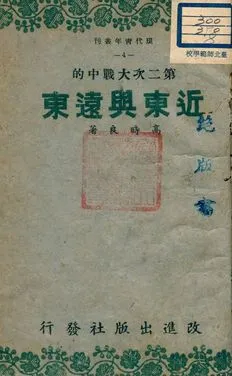 現代青年叢刊
—4—
第二次大戰中的
近東與遠東
高時良著
改進出版社發行
300
臺北師範學校
絕版書